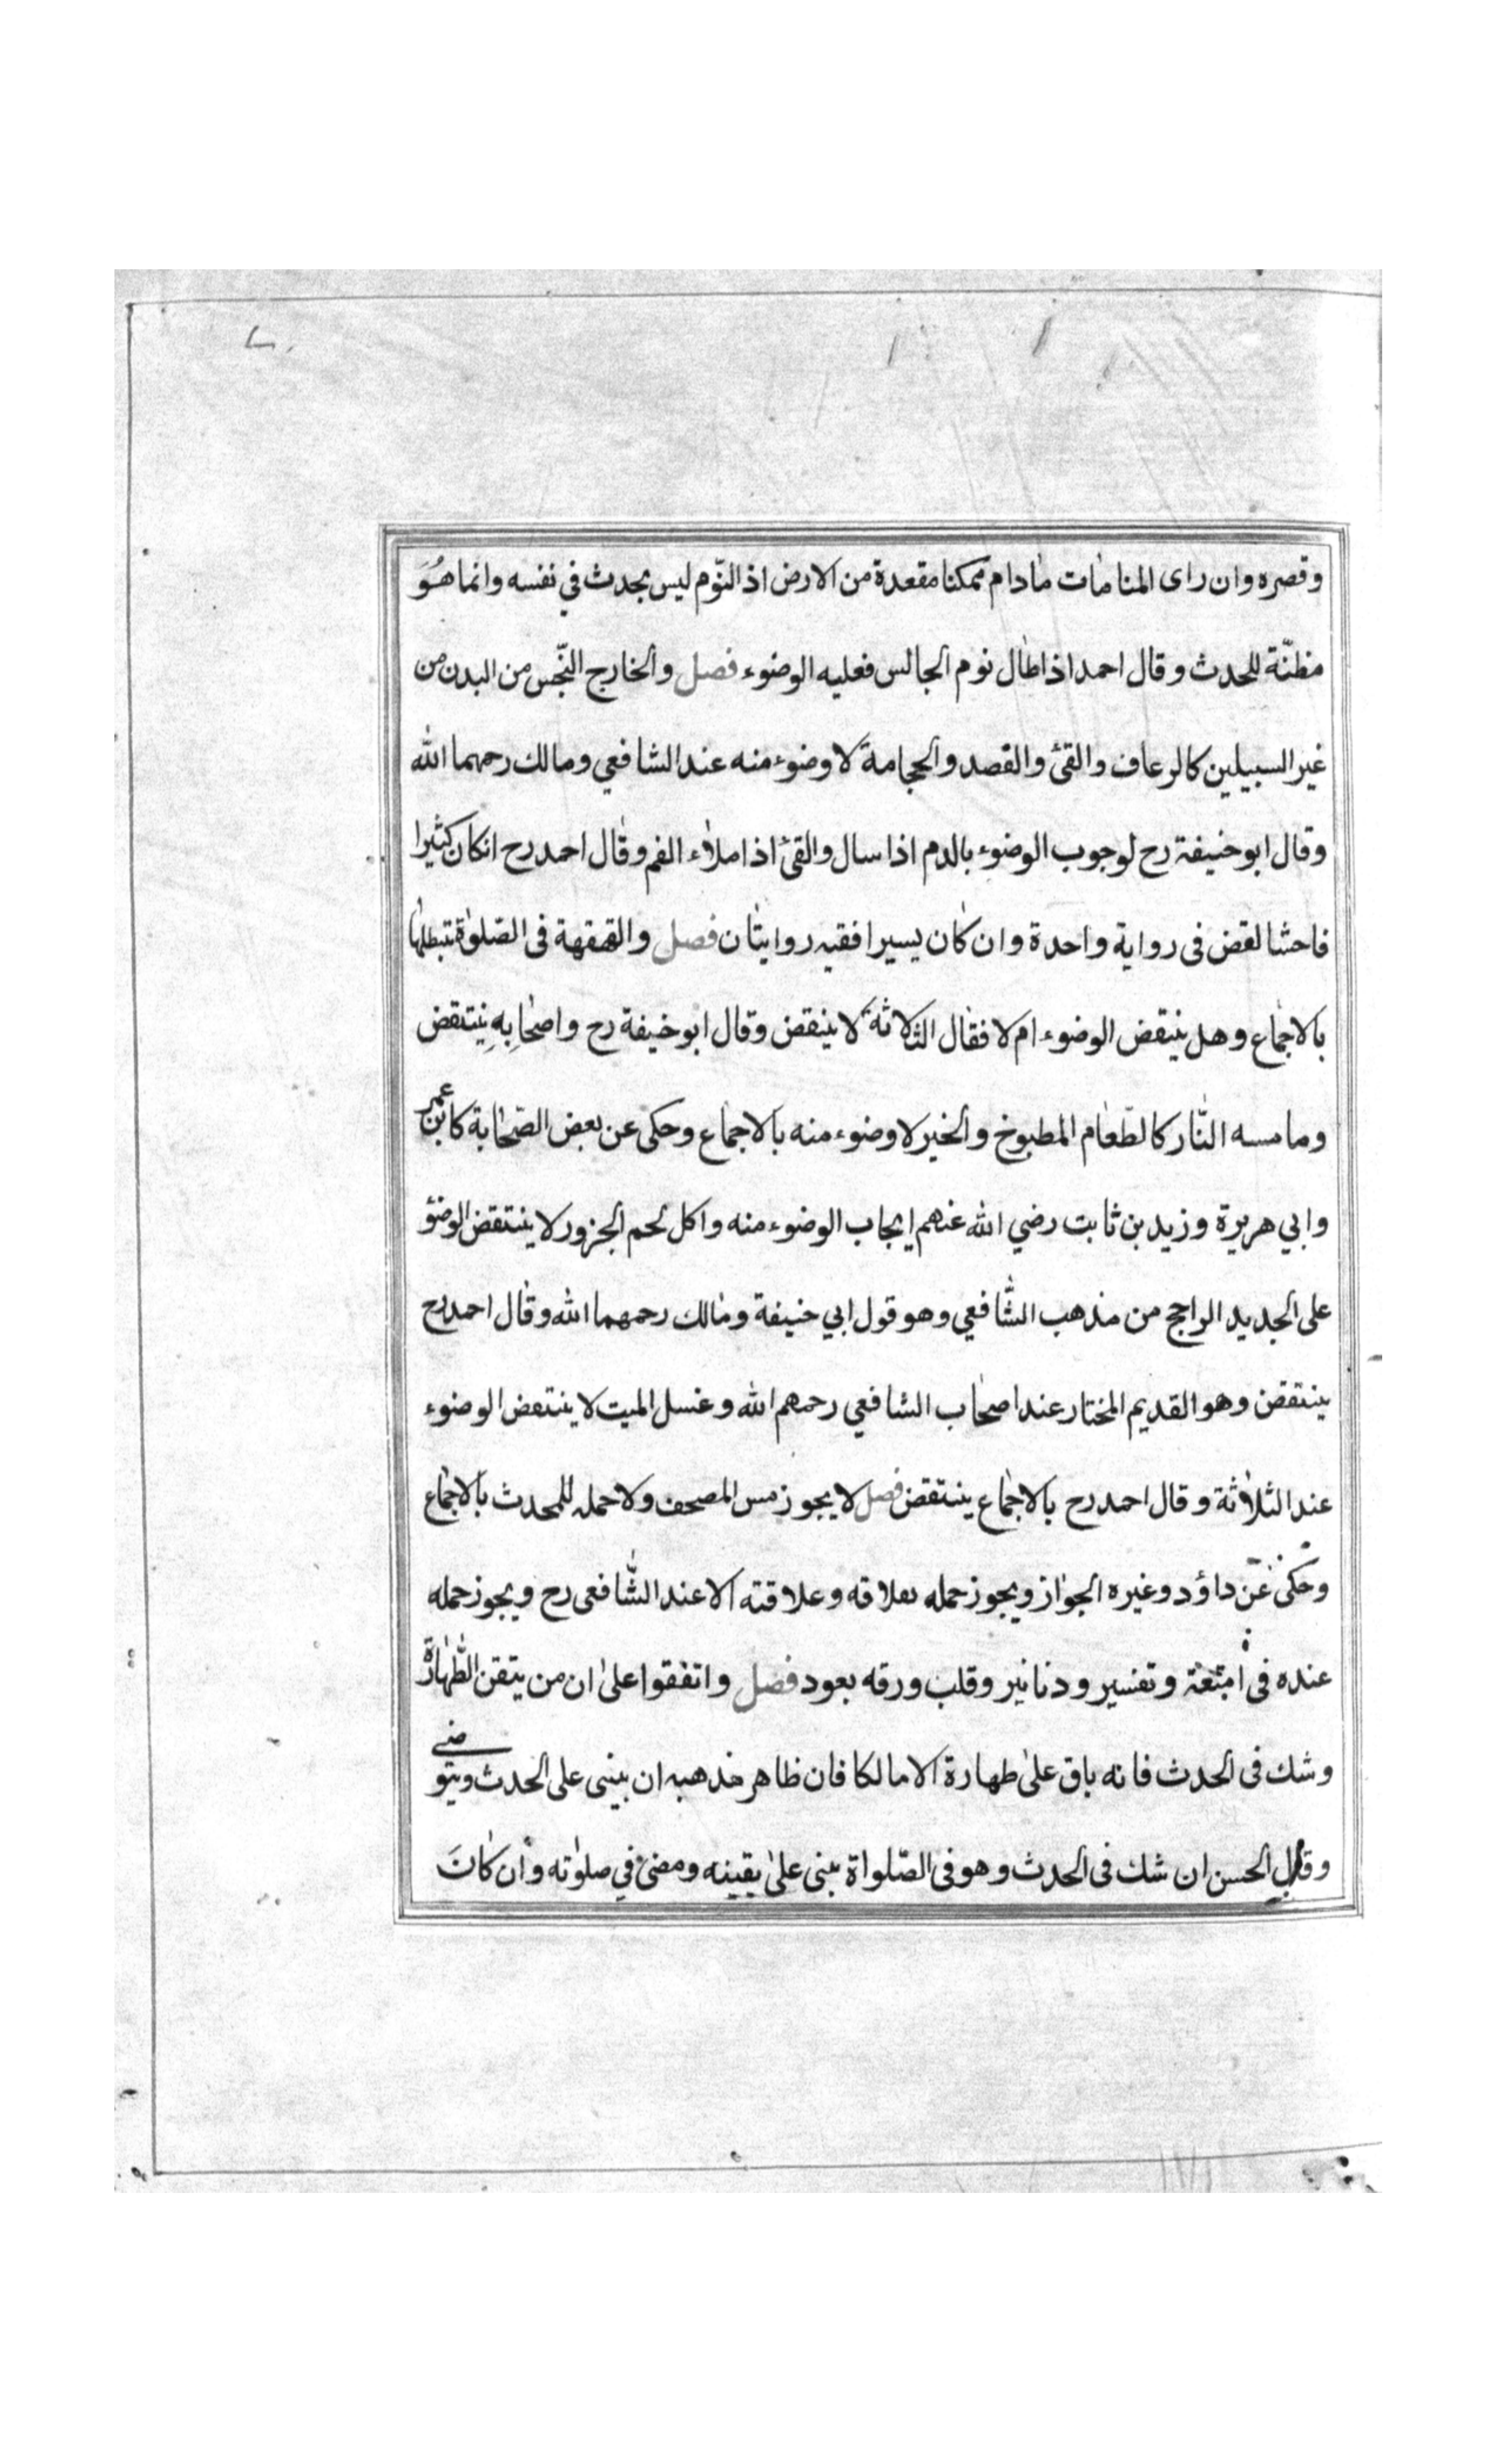 وقصره وان راى المنامات مادام ممكنا مقعدة من الارض اذ النّوم ليس بحدث في نفسه وانما هُوَ
مظنّة للحدث وقال احمد اذا طال نوم الجالس فعليه الوضوء فصل والخارج النّجس من البدن من
غير السبيلين كالرعاف والقئ والقصد والحجامة لا وضوء منه عند الشافعي ومالك رحمهما الله
وقال ابو حنيفة رح لوجوب الوضوء بالدم اذا سال والقئ اذا املاء الفم وقال احمد رح انكان كثيرا
فاحشا لقض فى رواية واحدة وان كان يسيرا فقيه روايتان فصل والقهقهة فى الصّلوة تبطلها
بالاجماع وهل ينتقض الوضوء ام لا فقال الثلاثة لا ينقض وقال ابو حنيفة رح واصحابِهِ ينتقض
وما مسه النّار كالطّعام المطبوخ والخبر لا وضوء منه بالاجماع وحكى عن بعض الصّحابة كابن عمر
وابي هريرة وزيد بن ثابت رضي الله عنهم ايجاب الوضوء منه واكل لحم الجزور لا ينتقض الوضؤ
على الجديد الراجح من مذهب الشّافعي وهو قول ابي حنيفة ومالك رحمهما الله وقال احمد رح
ينتقض وهو القديم المختار عند اصحاب الشافعي رحمهم الله وغسل الميت لا ينتعض الوضوء
عند الثلاثة وقال احمد رح بالاجماع ينتقض فصل لا يجوز مس المصحف ولا حمله للمحدث بالاجماع
وحكى عن داؤد وغيره الجواز ويجوز حمله بعلاقه وعلاقته الا عند الشّافعى رح ويجوز حمله
عنده فى امتعة وتفسير ودنانير وقلب ورقه بعود فصل واتفقوا على ان من يتقن الطّهارة
وشك فى الحدث فانه باق على طهارة الا مالكا فان ظاهر مذهبه ان يبنى على الحدث ويتوضى
وقال الحسن ان شك فى الحدث وهو فى الصّلواة بنى على يقينه ومضى في صلوته وان كانَ